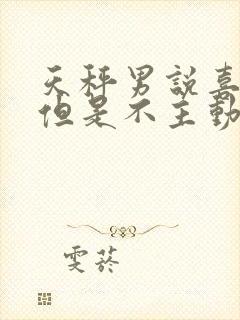 天秤男說喜
但是不主動
雯菸